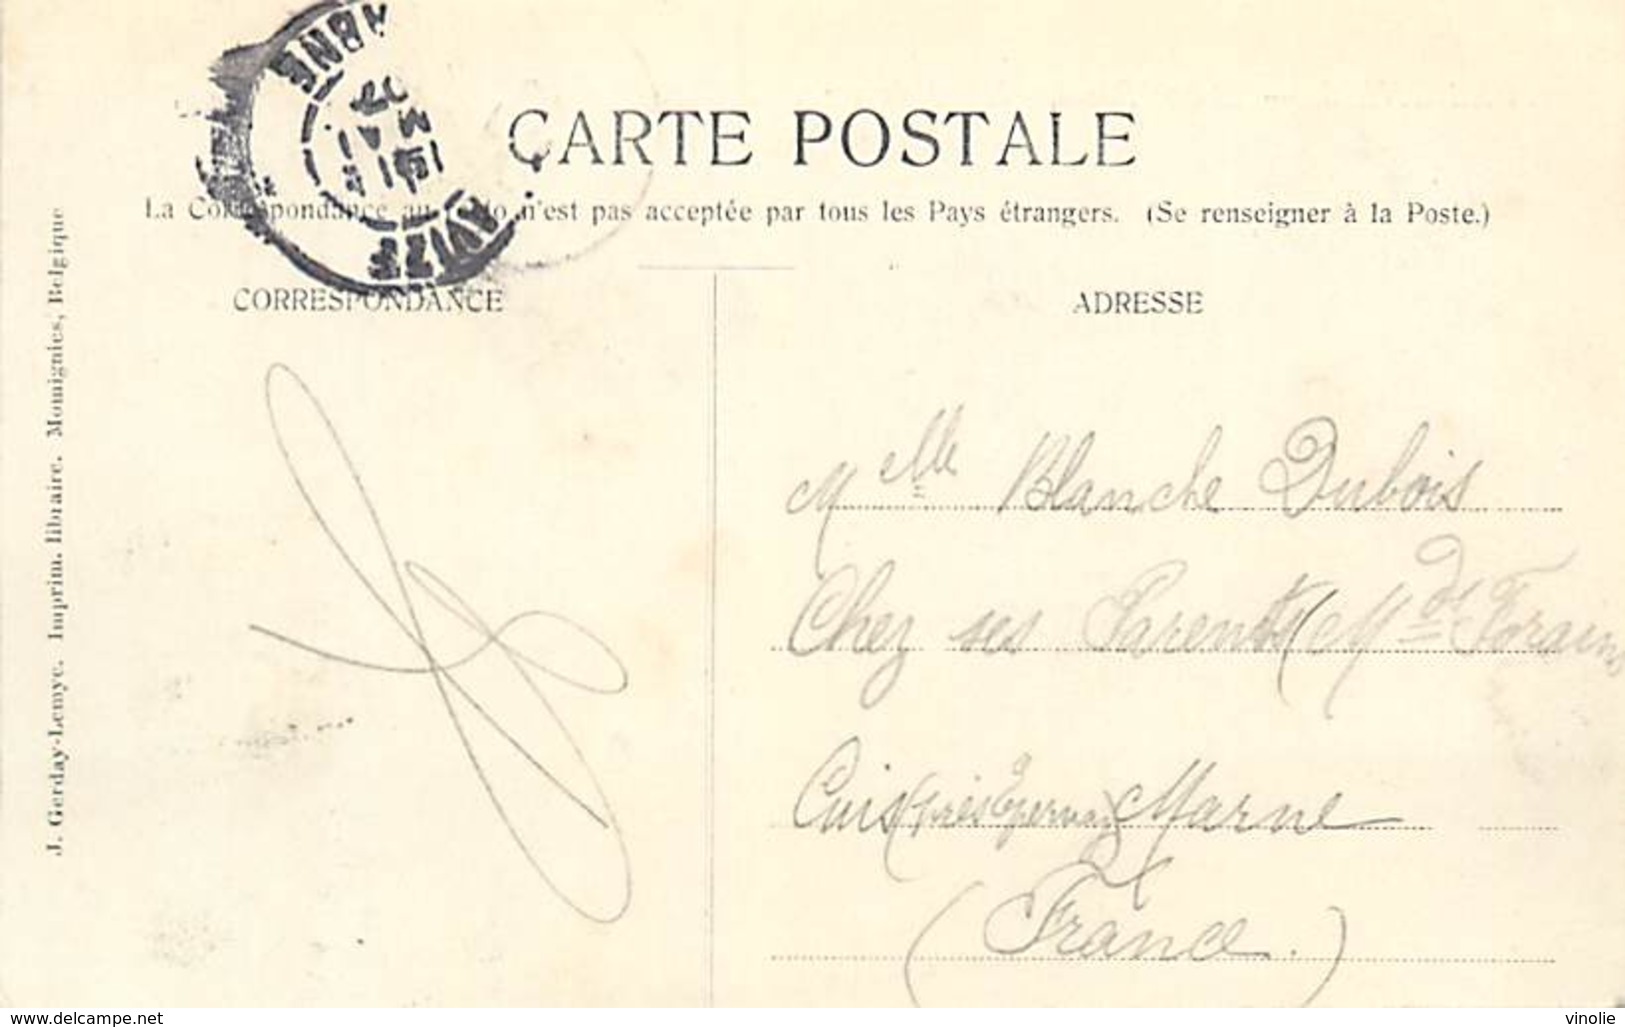 CARTE POSTALE
La Correspondance au n'est pas acceptée par tous les Pays étrangers. (Se renseigner à la Poste.)
CORRESPONDANCE
ADRESSE
J. Gerday-Lemye. Imprim. libraire. Momignies, Belgique
AVIZE
MARNE
Mlle Blanche Dubois
Chez ses Parents (Mds Forains
Cuis (près Epernay) Marne
(France.)
www.delcampe.net
vinolie